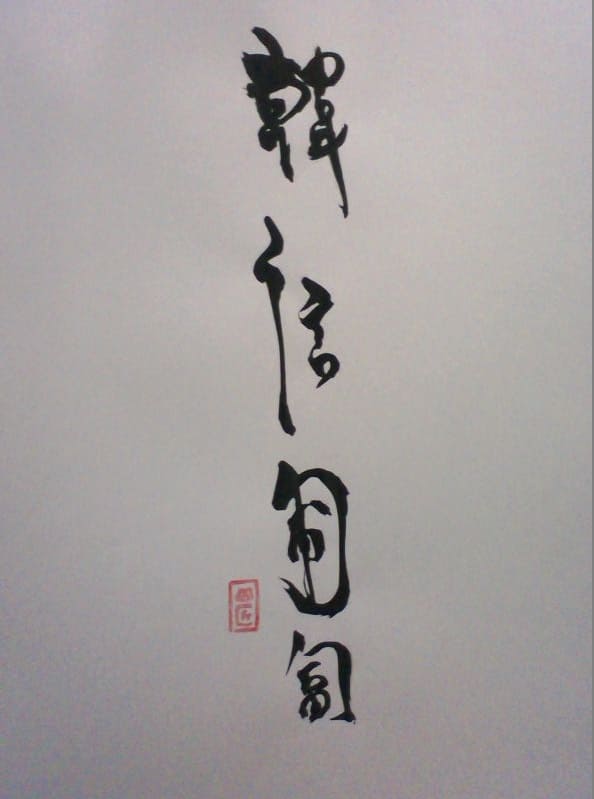 韓信匍匐